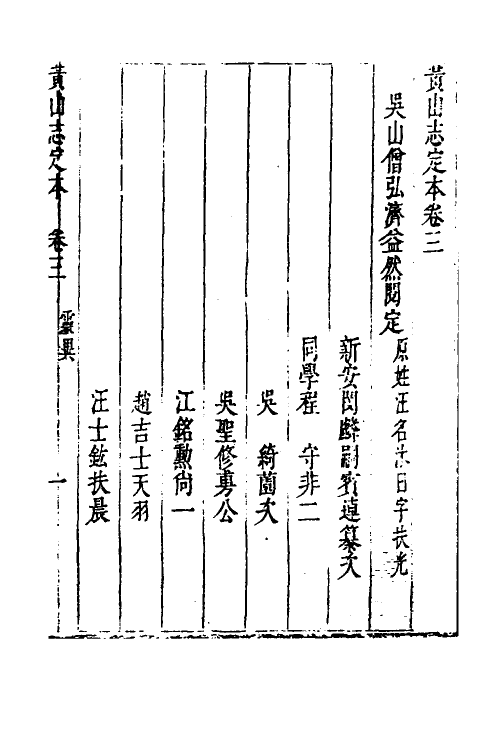 黃山志定本卷三
吳山僧弘濟益然閱定 原姓汪名沐日字扶光
新安閔麟嗣賓連纂次
同學程 守非二
吳 綺薗次
吳聖修勇公
江銘勳尙一
趙吉士天羽
汪士鋐扶晨
黃山志定本 卷三 靈異 一